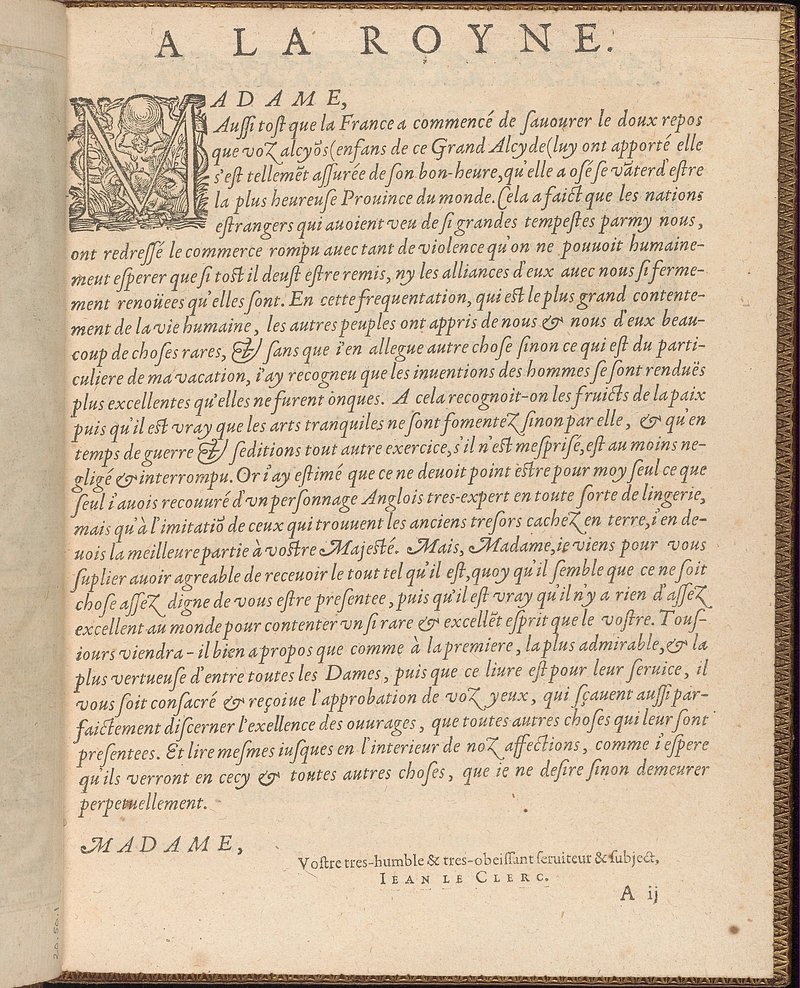 A LA ROYNE.
MADAME,
Aussi tost que la France a commencé de sauourer le doux repos
que voz alcyõs (enfans de ce Grand Alcyde (luy ont apporté elle
s'est tellemẽt assurée de son bon-heure, qu'elle a osé se vãter d'estre
la plus heureuse Prouince du monde. Cela a faict que les nations
estrangers qui auoient veu de si grandes tempestes parmy nous,
ont redressé le commerce rompu auec tant de violence qu'on ne pouuoit humaine-
meut esperer que si tost il deust estre remis, ny les alliances d'eux auec nous si ferme-
ment renoüees qu'elles sont. En cette frequentation, qui est le plus grand contente-
ment de la vie humaine, les autres peuples ont appris de nous & nous d'eux beau-
coup de choses rares, & sans que i'en allegue autre chose sinon ce qui est du parti-
culiere de ma vacation, i'ay recogneu que les inuentions des hommes se sont renduës
plus excellentes qu'elles ne furent onques. A cela recognoit-on les fruicts de la paix
puis qu'il est vray que les arts tranquiles ne sont fomentez sinon par elle, & qu'en
temps de guerre & seditions tout autre exercice, s'il n'est mesprisé, est au moins ne-
gligé & interrompu. Or i'ay estimé que ce ne deuoit point estre pour moy seul ce que
seul i'auois recouuré d'vn personnage Anglois tres-expert en toute sorte de lingerie,
mais qu'à l'imitatiõ de ceux qui trouuent les anciens tresors cachez en terre, i'en de-
uois la meilleure partie à vostre Majesté. Mais, Madame, ie viens pour vous
suplier auoir agreable de receuoir le tout tel qu'il est, quoy qu'il semble que ce ne soit
chose assez digne de vous estre presentee, puis qu'il est vray qu'il n'y a rien d'assez
excellent au monde pour contenter vn si rare & excellẽt esprit que le vostre. Tous-
iours viendra-il bien a propos que comme à la premiere, la plus admirable, & la
plus vertueuse d'entre toutes les Dames, puis que ce liure est pour leur seruice, il
vous soit consacré & reçoiue l'approbation de voz yeux, qui sçauent aussi par-
faictement discerner l'exellence des ouurages, que toutes autres choses qui leur sont
presentees. Et lire mesmes iusques en l'interieur de noz affections, comme i'espere
qu'ils verront en cecy & toutes autres choses, que ie ne desire sinon demeurer
perpetuellement.
MADAME,
Vostre tres-humble & tres-obeissant seruiteur & subject,
IEAN LE CLERC.
A ij
20.50.1